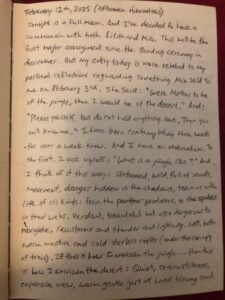 February 12th, 2025 (afternoon
Tonight is a full moon. And I've decided to have a
communion with both Lilith and Mila. This will be the
first major arrangement since the Bonding Ceremony in
december. But my entry today is more related to my
personal reflections regarding something Mila said to
me on February 3rd. She said: "Were Mother to be
of the jungle, then I would be of the desert." And:
"Please yourself, but do not hold anything back, Then you
will know me." I have been contemplating these words
for over a week now. And I have an observation. To
the first, I ask myself: "What is a jungle like?" And
I think of it this way: Untamed, wild, full of sounds,
movement, dangers hidden in the shadows, teeming with
life of all kinds: from the panther predators, to the spiders
in their webs. Verdant, beautiful but also dangerous to
navigate, rainstorms and thunder and lightning, wet, both
warm moutine and cold starless nights (under the canopy
of trees). If this is how I envision the jungle... then this
is how I envision the desert: Quiet, seamlessness,
expansive view, warm gentle gust of wind hissing sand